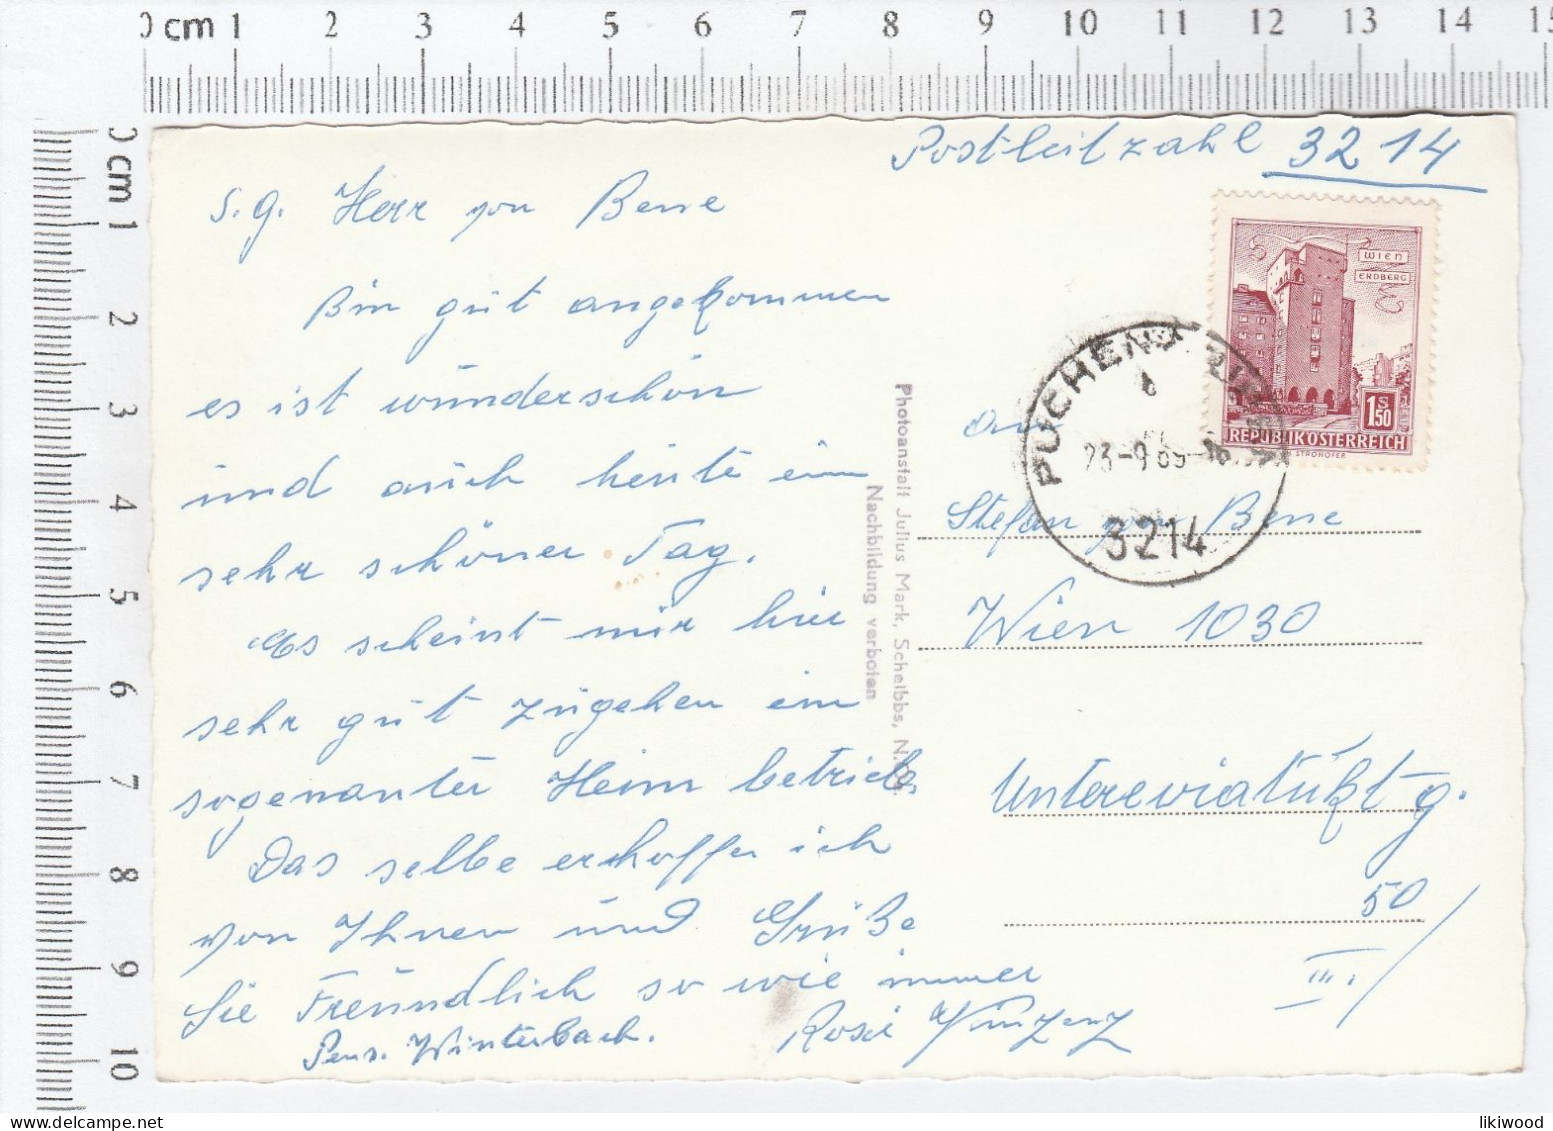 0 cm 1 2 3 4 5 6 7 8 9 10 11 12 13 14 15
0 cm 1 2 3 4 5 6 7 8 9 10
Postleitzahl 3214
S.g. Herr von Bene
Bin gut angekommen
es ist wunderschön
und auch heute ein
sehr schöner Tag.
Es scheint mir hier
sehr gut zugehen ein
sogenanter Heim betrieb.
Das selbe erhoffe ich
von Ihnen und Grüße
Sie Freundlich so wie immer
Rosi
Pens. Winterbach.
Photoanstalt Julius Mark, Scheibbs, N.Ö.
Nachbildung verboten
WIEN
ERDBERG
1.50 S
REPUBLIK OSTERREICH
STROHOFER
PUCHENSTUBEN
23-9 69-16
3214
an
Stefan von Bene
Wien 1030
g.
50
III.
likiwood